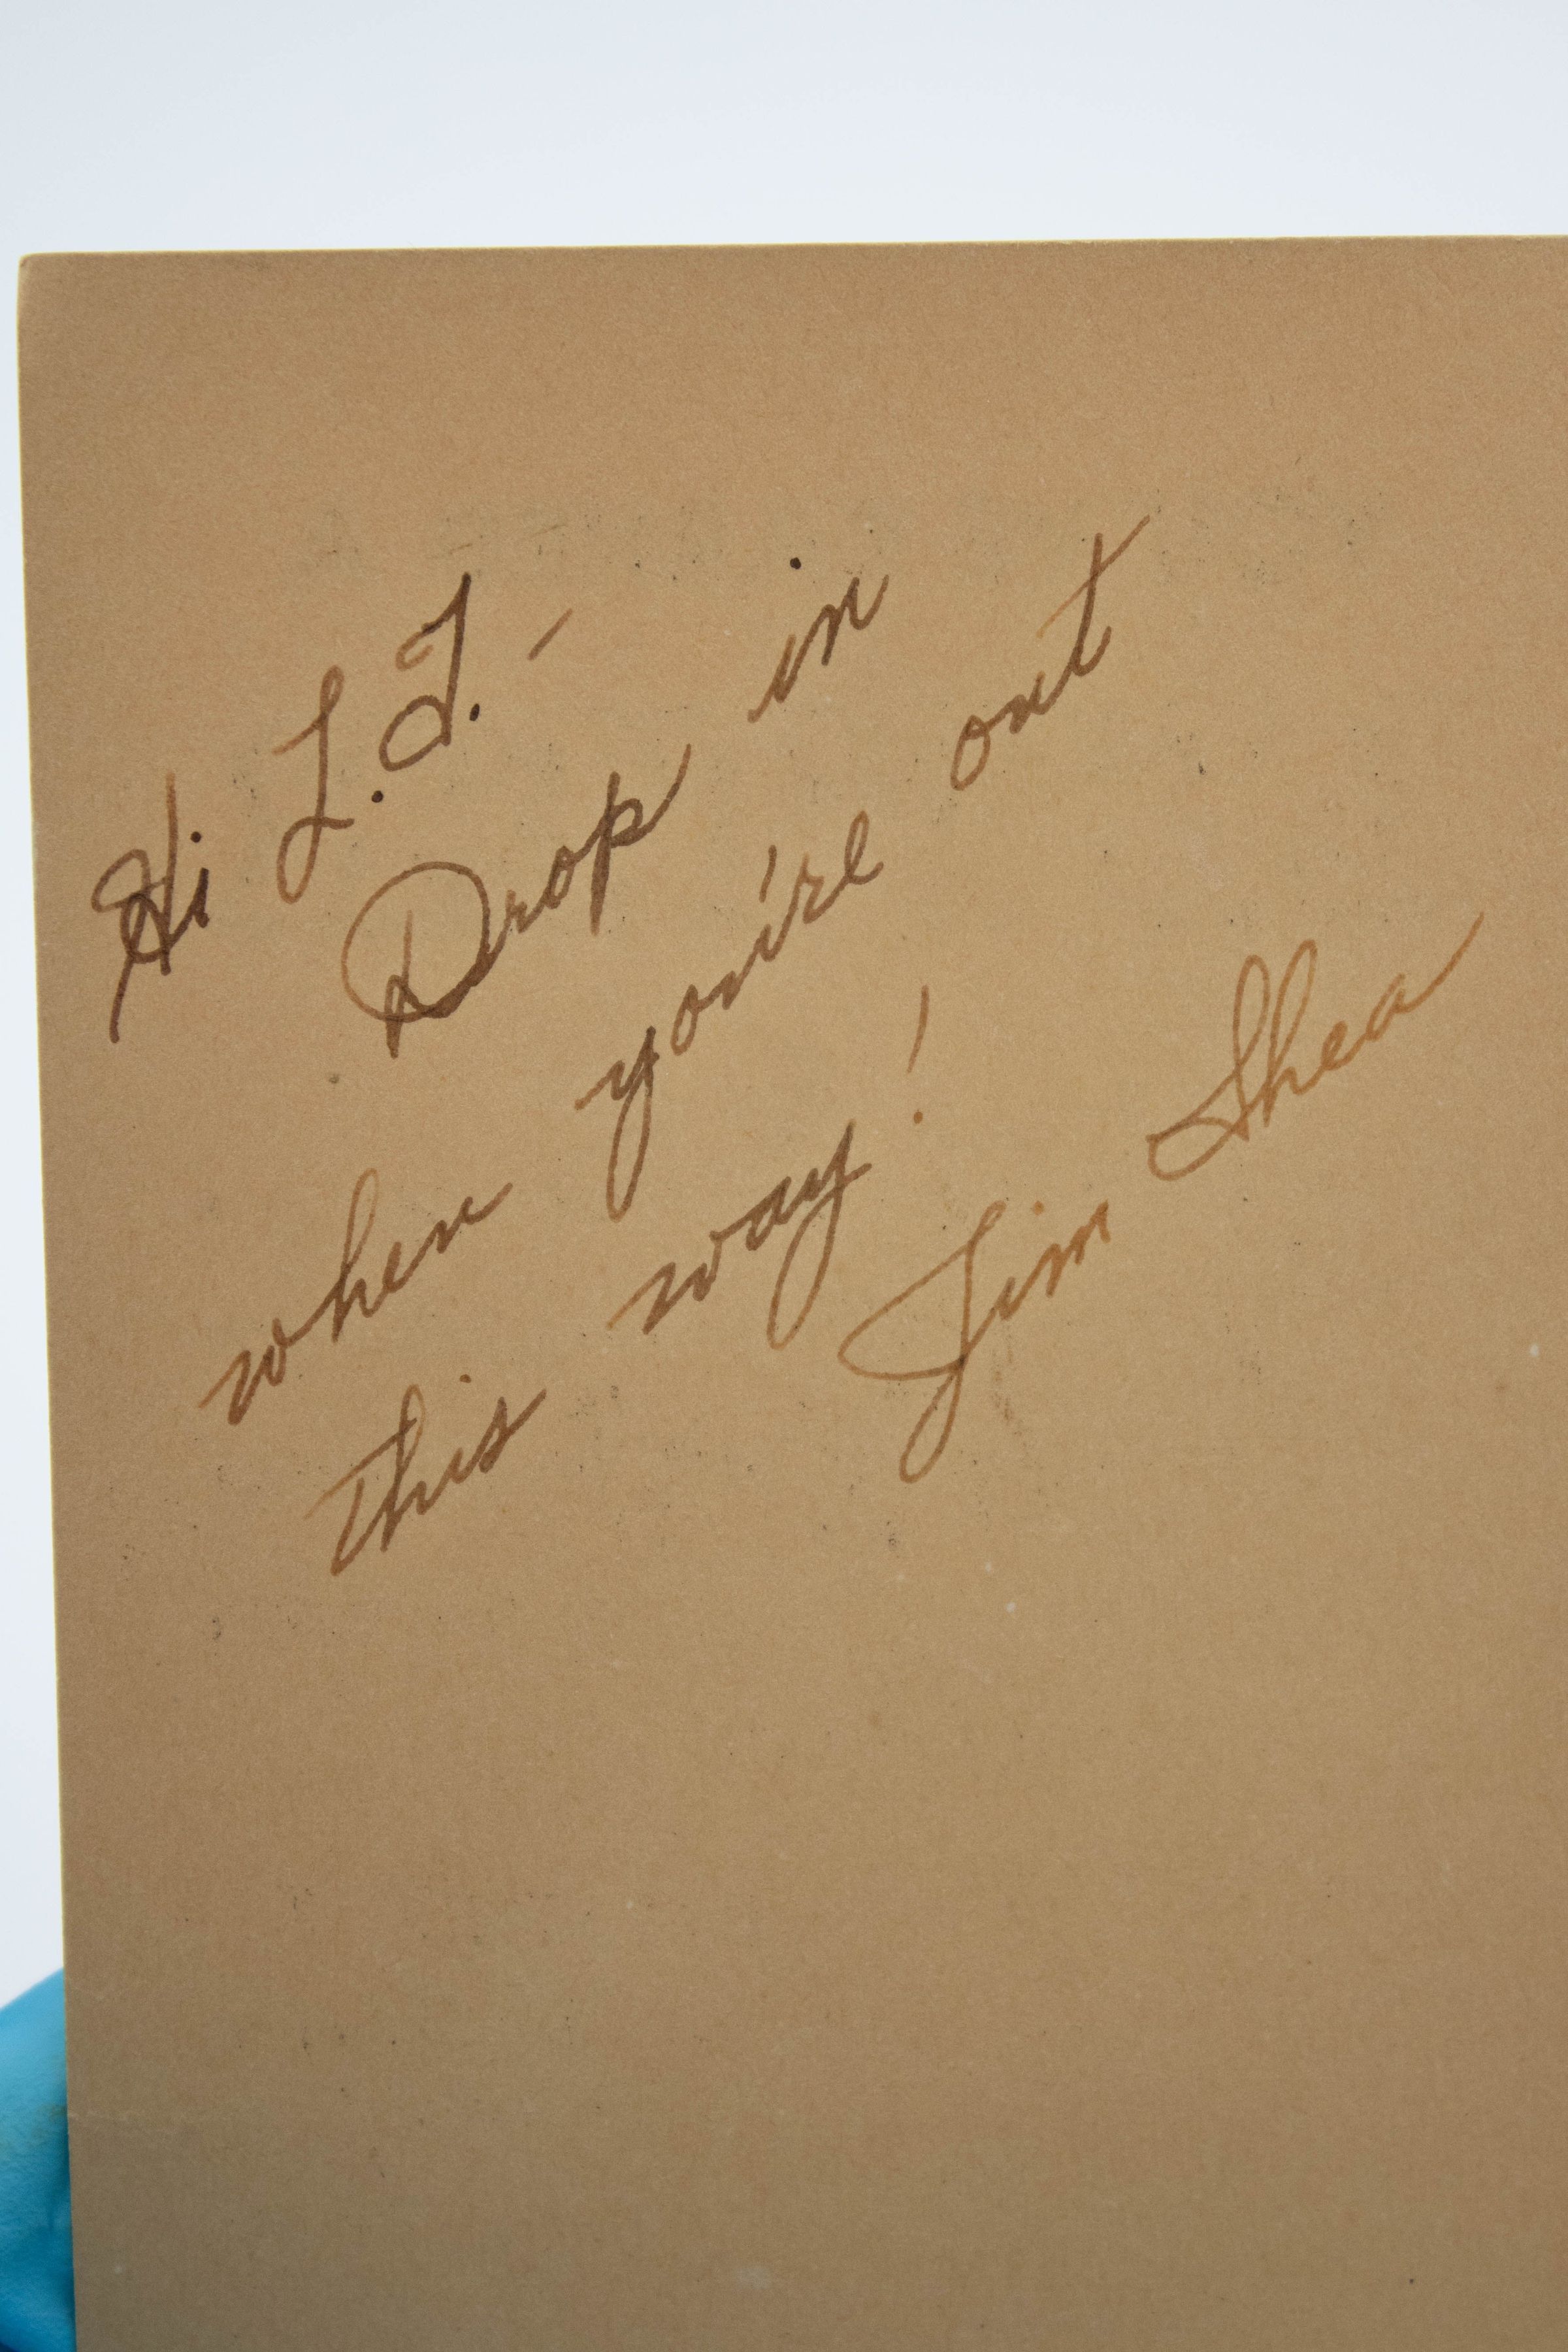 Hi L.T. -
Drop in
when you're out
this way!
Jim Shea